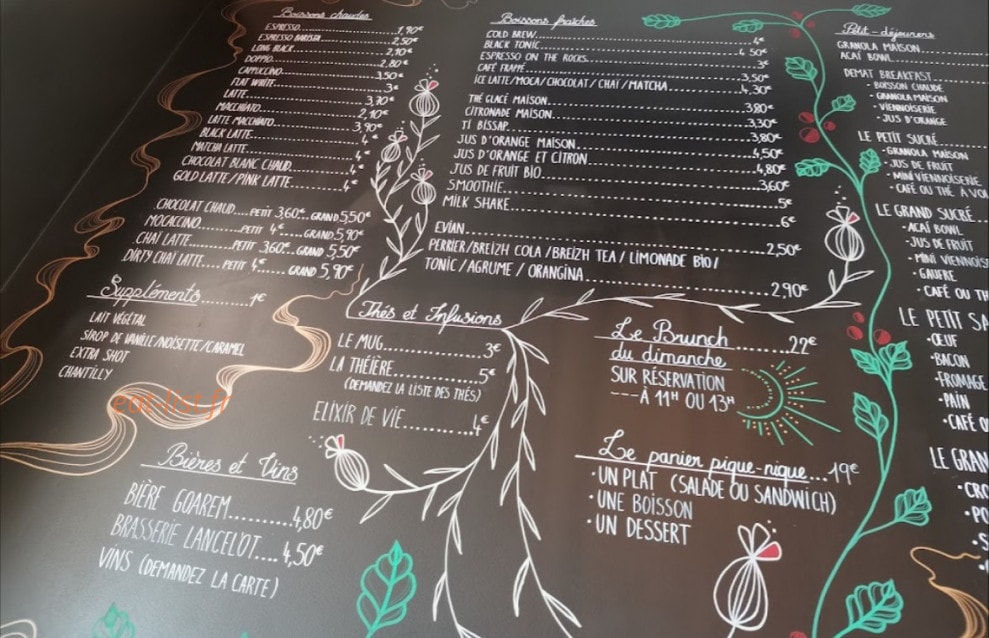 Boissons chaudes
ESPRESSO 1,90€
ESPRESSO BARISTA 2,50€
LONG BLACK 2,10€
DOPPIO 2,80€
CAPPUCCINO 3,50€
FLAT WHITE 3€
LATTE 3,70€
MACCHIATO 2,10€
LATTE MACCHIATO 3,90€
BLACK LATTE 4€
MATCHA LATTE 4€
CHOCOLAT BLANC CHAUD 4€
GOLD LATTE / PINK LATTE 4€
CHOCOLAT CHAUD.... PETIT 3,60€ GRAND 5,50€
MOCACCINO PETIT 4€ GRAND 5,90€
CHAÏ LATTE PETIT 3,60€ GRAND 5,50€
DIRTY CHAÏ LATTE.... PETIT 4€ GRAND 5,90€
Suppléments 1€
LAIT VÉGÉTAL
SIROP DE VANILLE/NOISETTE/CARAMEL
EXTRA SHOT
CHANTILLY
eat-list.fr
Bières et Vins
BIÈRE GOAREM 4,80€
BRASSERIE LANCELOT.... 4,50€
VINS (DEMANDEZ LA CARTE)
Boissons fraîches
COLD BREW 4€
BLACK TONIC 4,50€
ESPRESSO ON THE ROCKS 3€
CAFÉ FRAPPÉ 3,50€
ICE LATTE/MOCA/CHOCOLAT/CHAÏ/MATCHA 4,30€
THÉ GLACÉ MAISON 3,80€
CITRONADE MAISON 3,30€
TI BISSAP 3,80€
JUS D'ORANGE MAISON 4,50€
JUS D'ORANGE ET CITRON 4,80€
JUS DE FRUIT BIO 3,60€
SMOOTHIE 5€
MILK SHAKE 6€
EVIAN 2,50€
PERRIER/BREIZH COLA/BREIZH TEA/LIMONADE BIO/
TONIC/AGRUME/ORANGINA 2,90€
Thés et Infusions
LE MUG 3€
LA THÉIÈRE 5€
(DEMANDEZ LA LISTE DES THÉS)
ELIXIR DE VIE 4€
Le Brunch
du dimanche 22€
SUR RÉSERVATION
---À 11H OU 13H
Le panier pique-nique...19€
·UN PLAT (SALADE OU SANDWICH)
·UNE BOISSON
·UN DESSERT
Petit-déjeuners
GRANOLA MAISON
AÇAÏ BOWL
DEMAT BREAKFAST
·BOISSON CHAUDE
·GRANOLA MAISON
·VIENNOISERIE
·JUS D'ORANGE
LE PETIT SUCRÉ
·GRANOLA MAISON
·JUS DE FRUIT
·MINI VIENNOISERIE
·CAFÉ OU THÉ
LE GRAND SUCRÉ
·AÇAÏ BOWL
·JUS DE FRUIT
·MINI
·GAUFRE
·CAFÉ OU
LE PETIT
·ŒUF
·BACON
·FROMAGE
·PAIN
·CAFÉ
LE